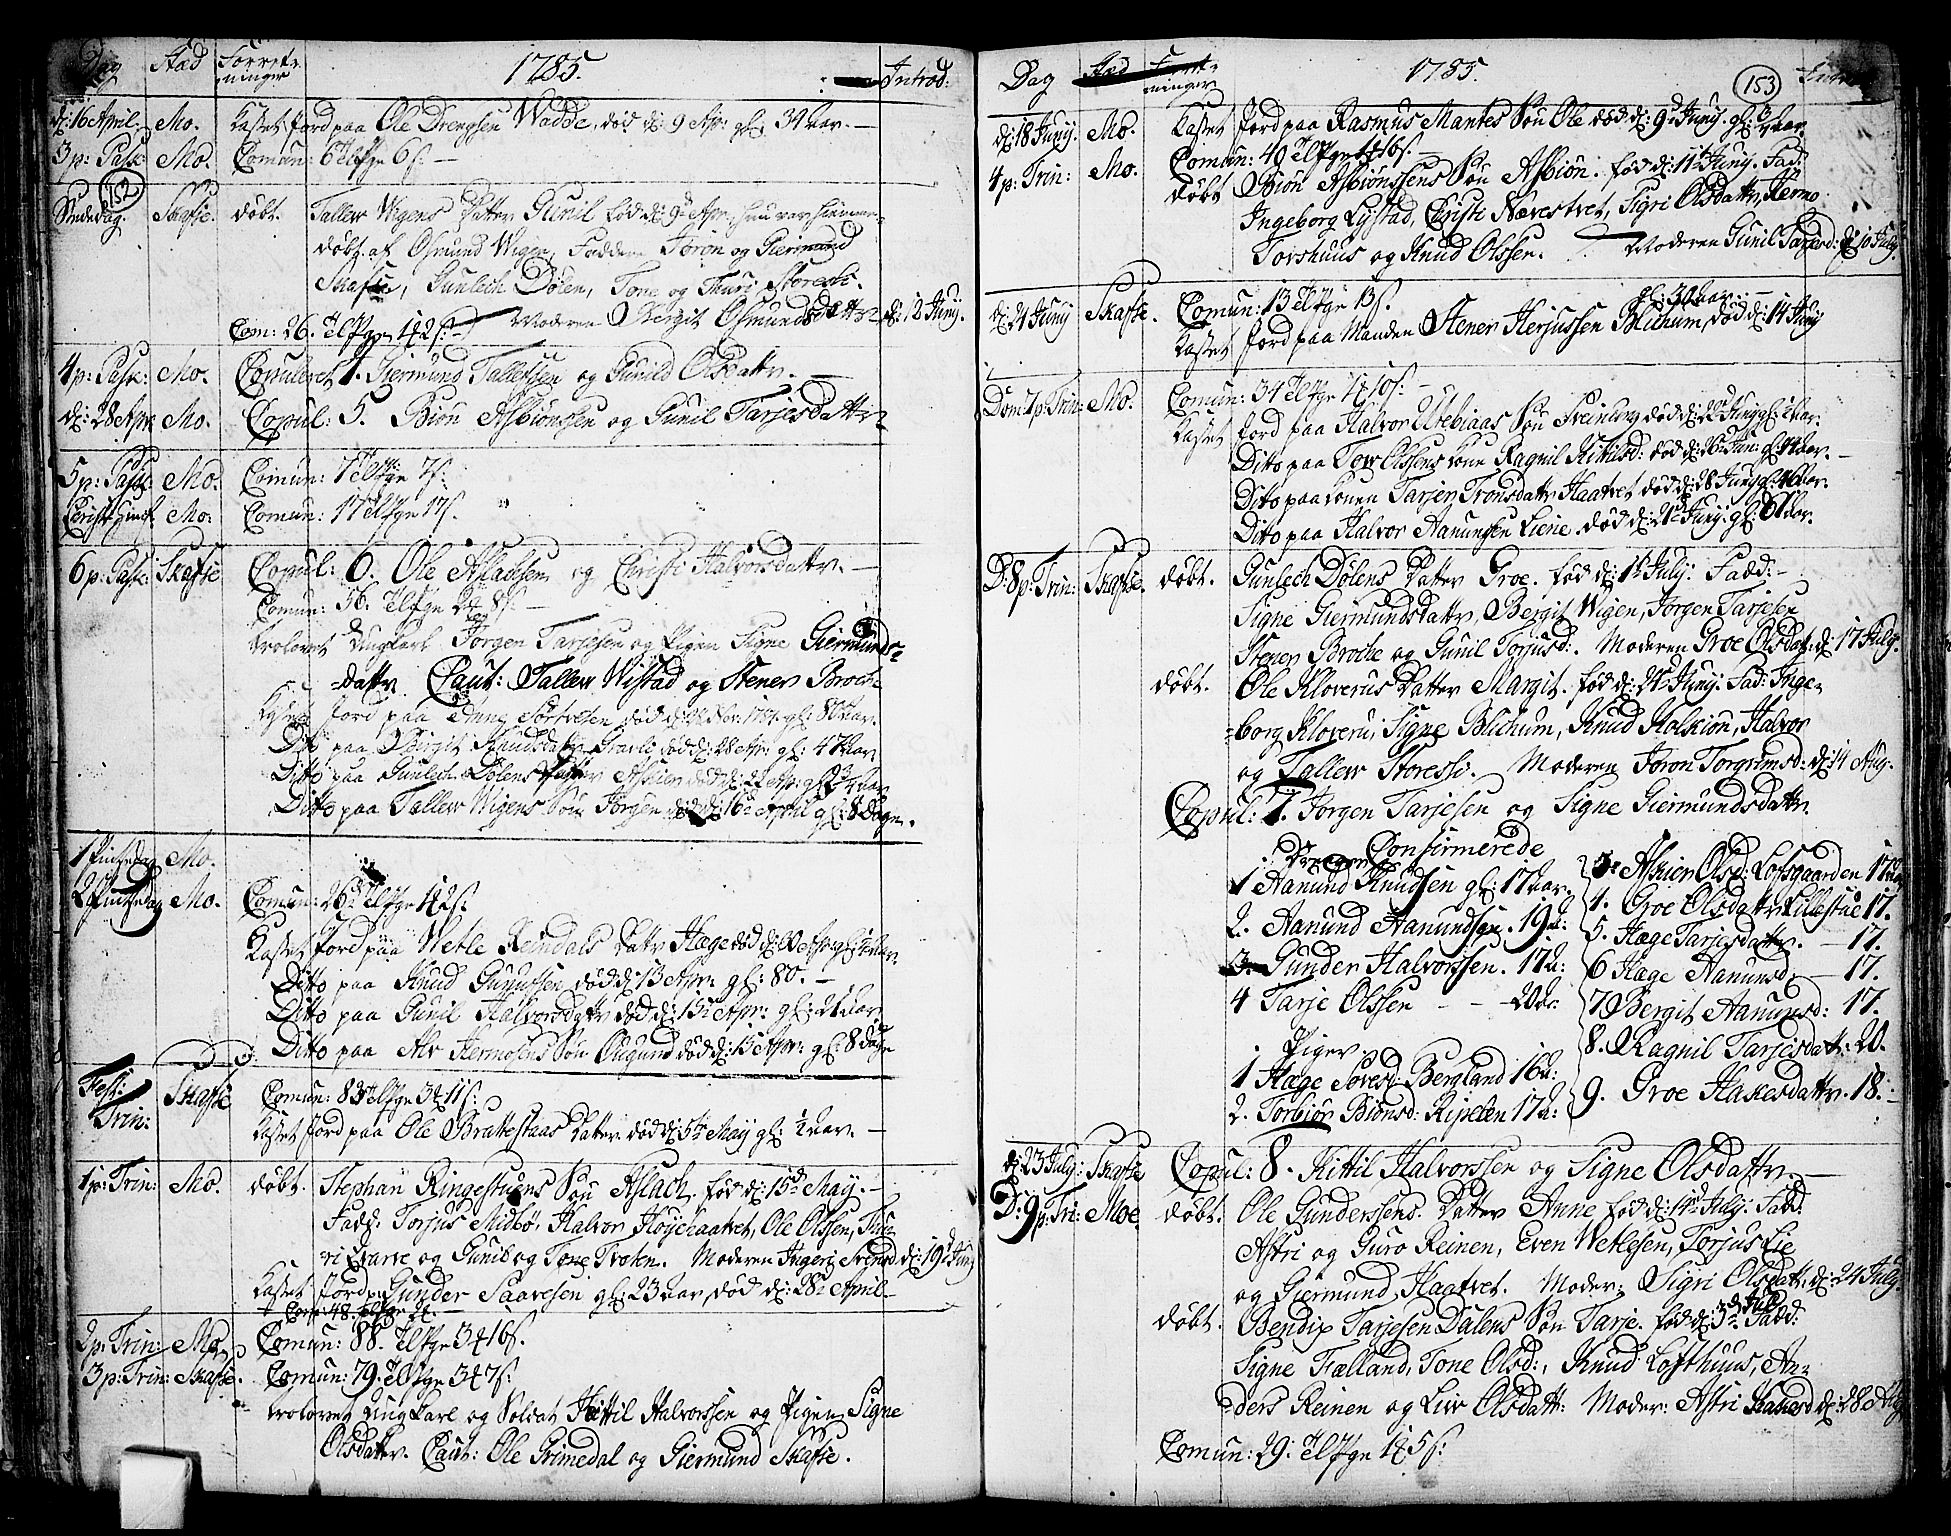 Dag Stæd Forret-
ninger 1785. Introd:
d: 16 April. Mo. Kastet Jord paa Ole Drengsen Wadde, død d: 9 Apr: gl: 34 aar. —
3 p: Pask: Mo. Comun: 6 Elfge 6 s. —
152
Skafse. døbt. Tallew Wigens Datter Gunil fød d: 9 Apr: hun var hiemme-
døbt af Osmund Wigen, Faddere Joron og Giermund
Skafse, Gunlech Dølen, Tone og Thuri Storessi.
Com: 26. Elfge 1 # 2 s: — Moderen Bergit Osmundsdattr d: 12 Juny.
4 p: Pask: Mo. Copuleret 4. Giermund Tallefsen og Gunild Olsdattr. —
d: 28 Apr: Mo. Copul: 5. Biøn Asbiønssen og Gunil Tarjesdattr
5 p: Pask: Mo. Comun: 7 Elfge 7 s.
Christi Himf. Mo: Comun: 17 Elfge 17 s.
6 p: Pask: Skafse Copul: 6. Ole Aslachsen og Christi Halvorsdattr. —
Comun: 56. Elfge 2 # 8 s. —
trolovet Ungkarl Jorgen Tarjesen og Pigen Signe Giermunds-
dattr Caut: Tallew Wistad og Stener Broche
Kastet Jord paa
Ditto paa Birgit Knudsdattr død d: 28 Apr: gl: 4 aar
Ditto paa Gunlech Dølens Datter Askier død d: 22 Apr: gl:
Ditto paa Tallew Wigens Søn Jørgen død d: 16 April gl: 8 Dage.
1 Pintzedag Mo.
2 Pintzedag Mo. Comun: 26 Elfge 1 # 2 s.
Kastet Jord paa Wetle Reindals Dattr Hæge død d: 20 Apr gl:
Ditto paa Knud Gunussen død d: 13 Apr: gl: 80. —
Ditto paa Gunil Halvorsdattr død d: 15 Apr: gl:
Ditto paa Alv Hermosens Søn Ougund død d: 13 Apr: gl: 8 dage
Fest:
Trin: Skafse Comun: 83 Elfge 3 # 11 s.
Kastet Jord paa Ole Brattestaas Datter død d: 5 May gl: ½ aar. —
1 p: Trin: Mo. døbt. Stephan Ringestuens Søn Aslach. fød d: 15 May. —
Fadd: Torjus Midbø, Halvor Høyehaatvet, Ole Olssen, Thu-
ri Qvarve og Gunil og Tone Troten. Moderen Ingeri Svensd: d: 19 Juny
Kastet Jord p: Gunder Saavesen gl: 23 aar, død d: 28 April.
Com: 48. Elfge 2 #. —
2 p: Trin: Mo. Comun: 88. Elfge 3 # 16 s.
3 p: Trin: Skafse. Comun: 79. Elfge 3 # 7 s.
trolovet Ungkarl og Soldat Kittil Halvorssen og Pigen Signe
Olsdatter. Caut: Ole Grimedal og Giermund Skafse.
Dag Stæd Forret-
ninger 1785. 153
d: 18 Juny. Mo. Kastet Jord paa Rasmus Mantes Søn Ole død d: 9 Juny. gl: aar.
4 p: Trin: Mo. Comun: 40 Elfge 1 # 16 s. —
døbt Biøn Asbiønssens Søn Asbiøn. fød d: 11 Juny. Fad:
Ingeborg Lystad, Christi Nærestvet, Sigri Olsdattr,
Torshuus og Knud Olssen. Moderen Gunil Tarjesd: d: 10 July.
d: 24 Juny Skafse. Comun: 13 Elfge 13 s. gl: 30 aar. —
Kastet Jord paa Manden Stener Herjussen Blichum, død d: 14 Juny
Dom: 7 p: Trin: Mo. Comun: 34 Elfge 1 # 10 s. —
Kastet Jord paa Halvor Utebiaas Søn Sveinung død d: 22 Juny gl: aar.
Ditto paa Tow Olssens Kone Ragnil Kittilsd: død d: 26 Jun: gl: 44 aar. —
Ditto paa Konen Tarjer Tronsdattr Haatvet død d: 28 Juny gl: 46 aar.
Ditto paa Halvor Aanungsen Liene. død d: 21 Juny. gl: 61 aar.
D: 8 p: Trin: Skafse. døbt. Gunlech Dølens Datter Groe. fød d: 1 July. Fadd: —
Signe Giermundsdattr, Bergit Wigen, Jørgen Tarjesen
Stener Broche og Gunil Torjusd:. Moderen Groe Olsdat: d: 17 July.
døbt. Ole Kloverus Datter Margit. fød d: 24 Juny. Fad: Inge-
borg Kloveru, Signe Blichum, Knud Kolkiøn, Halvor
og Tallew Storessi. Moderen Joron Torgrimsd: d: 14 Aug.
Copul: 7. Jorgen Tarjesen og Signe Giermundsdattr.
Confirmerede
Drenger
1 Aanund Knudsen gl: 17 aar.
2. Aanund Aanundsen. 19 a:
3. Gunder Halvorssen. 17 a:
4 Tarje Olssen - - 20 a:
Piger
1 Hæge Sovesd: Bergland 16 a:
2. Torbiør Biørnsd: Ripeten 17 a:
3. Askier Olsd: Lofsgaarden 17 aar
4. Groe Olsdattr Lillestue 17.
5. Hæge Tarjesdattr. — 17.
6 Hæge Aanunsd: — 17.
7 Bergit Aanunsd: 17.
8. Ragnil Tarjesdattr: 20.
9. Groe Hakesdattr. 18. —
d: 23 July: Skafse Copul: 8. Kittil Halvorssen og Signe Olsdattr. —
D: 9 p: Tri: Moe. døbt. Ole Gunderssens Datter Anne fød d: 14 July. Fadd:
Astri og Guro Reinen, Even Wetlesen, Torjus Lie
og Giermund Haatvet. Moder: Sigri Olsdatt: d: 24 July.
døbt. Bendix Tarjesen Dalens Søn Tarje. fød d: 3 July Fadd:
Signe Fælland, Tone Olsd:, Knud Lofthuus, An-
ders Reinen og Liw Olsdattr: Moder: Astri d: 28 Aug
Comun: 29. Elfge 1 # 5 s: